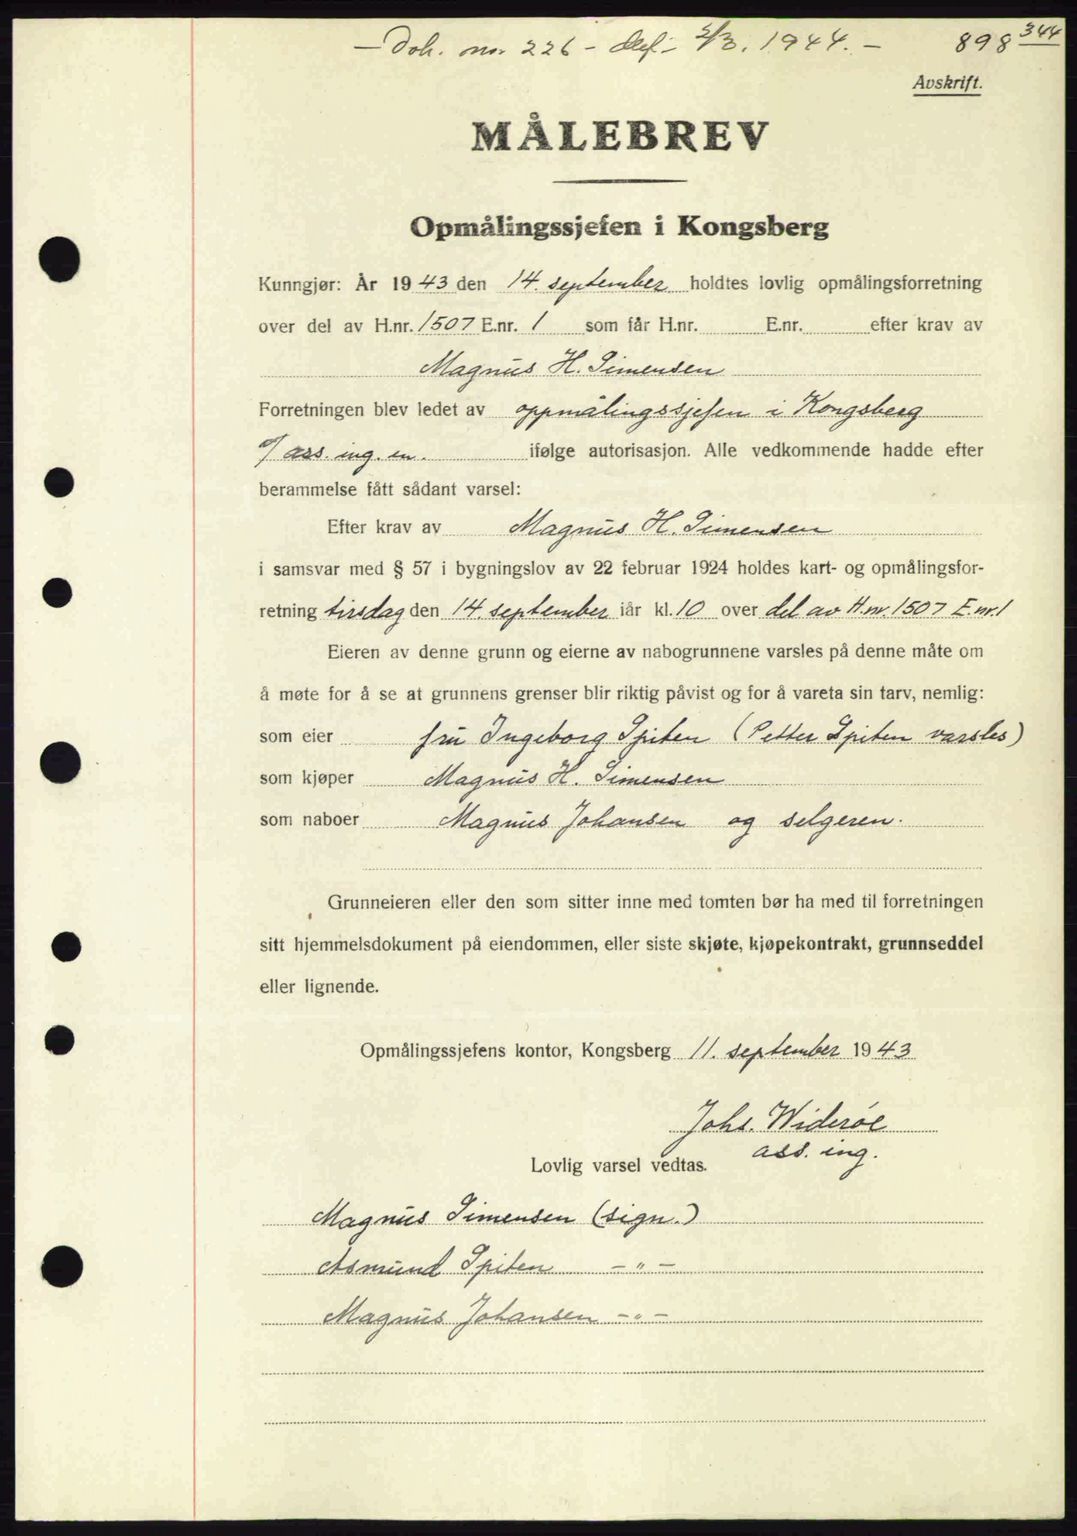 — Dok. nr. 226 – 2/3. 1944. — 898 344
Avskrift.
MÅLEBREV
Opmålingssjefen i Kongsberg
Kunngjør: År 1943 den 14. september holdtes lovlig opmålingsforretning
over del av H.nr. 1507 E.nr. 1 som får H.nr. E.nr. efter krav av
Magnus H. Simensen
Forretningen blev ledet av oppmålingssjefen i Kongsberg
v/ ass. ing. en. ifølge autorisasjon. Alle vedkommende hadde efter
berammelse fått sådant varsel:
Efter krav av Magnus H. Simensen
i samsvar med § 57 i bygningslov av 22 februar 1924 holdes kart- og opmålingsfor-
retning tirsdag den 14. september iår kl. 10 over del av H.nr. 1507 E.nr. 1
Eieren av denne grunn og eierne av nabogrunnene varsles på denne måte om
å møte for å se at grunnens grenser blir riktig påvist og for å vareta sin tarv, nemlig:
som eier fru Ingeborg Spiten (Petter Spiten varsles)
som kjøper Magnus H. Simensen
som naboer Magnus Johansen og selgeren.
Grunneieren eller den som sitter inne med tomten bør ha med til forretningen
sitt hjemmelsdokument på eiendommen, eller siste skjøte, kjøpekontrakt, grunnseddel
eller lignende.
Opmålingssjefens kontor, Kongsberg 11. september 1943
Johs. Widerøe
ass. ing.
Lovlig varsel vedtas.
Magnus Simensen (sign.)
Asmund Spiten – " –
Magnus Johansen – " –